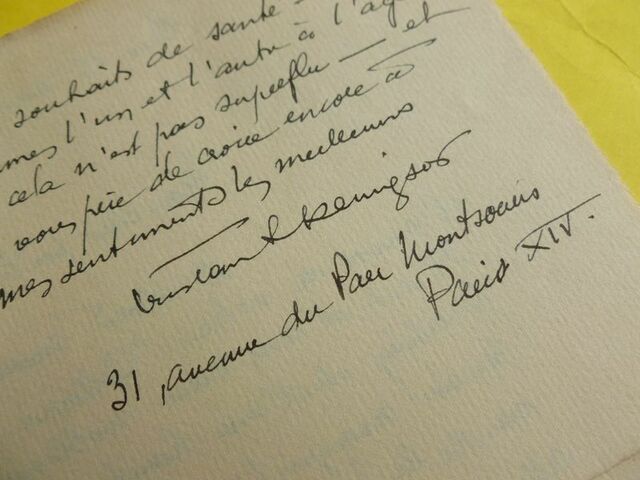 souhaits de santé —
mes l'un et l'autre à l'âg
cela n'est pas superflu — et
vous prie de croire encore à
mes sentiments les meilleurs
31, avenue du Parc Montsouris
Paris XIV.